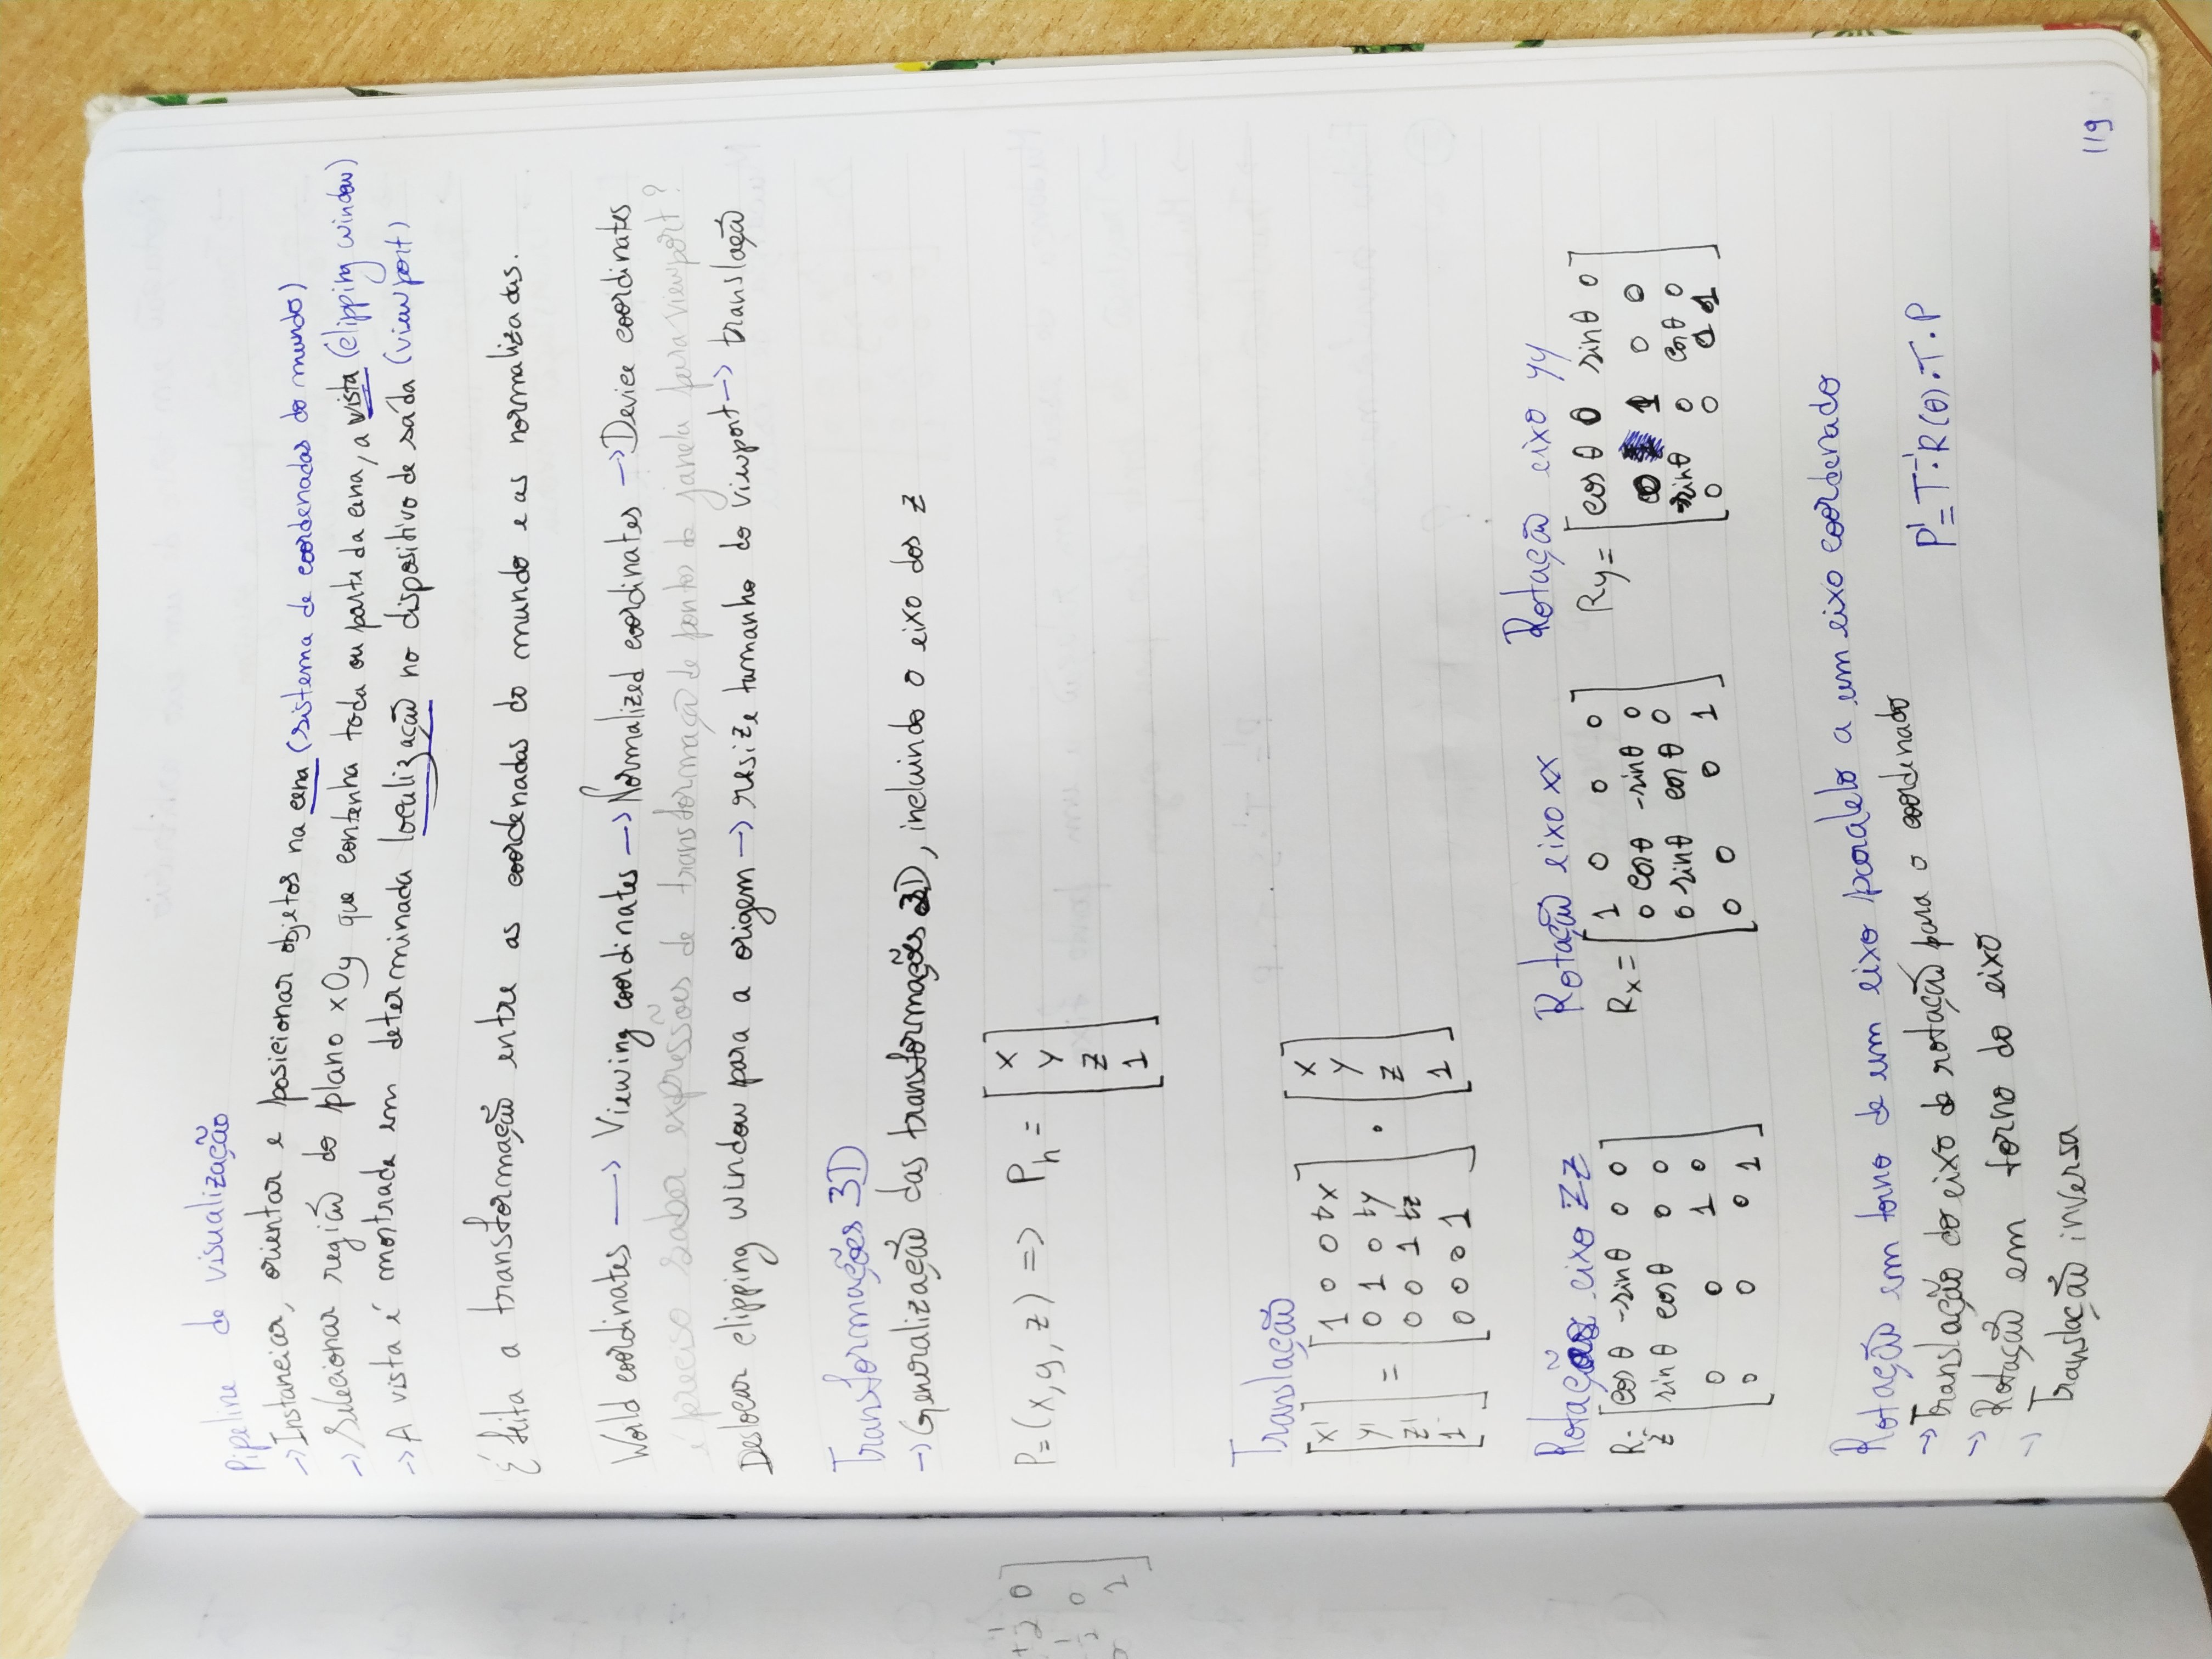 Pipeline de visualização
→ Instanciar, orientar e posicionar objetos na cena (sistema de coordenadas do mundo)
→ Selecionar região do plano xOy que contenha toda ou parte da cena, a vista (clipping window)
→ A vista é mostrada em determinada localização no dispositivo de saída (viewport)
É feita a transformação entre as coordenadas do mundo e as normalizadas.
World coordinates → Viewing coordinates → Normalized coordinates → Device coordinates
é preciso saber expressões de transformação de pontos da janela para viewport?
Deslocar clipping window para a origem → resize tamanho do viewport → translação
Transformações 3D
→ Generalização das transformações 2D, incluindo o eixo dos z
P=(x,y,z) => Ph = [x
y
z
1]
Translação
[x' y' z' 1] = [1 0 0 tx
0 1 0 ty
0 0 1 tz
0 0 0 1] · [x y z 1]
Rotação eixo zz
Rz= [cos θ -sin θ 0 0
sin θ cos θ 0 0
0 0 1 0
0 0 0 1]
Rotação eixo xx
Rx= [1 0 0 0
0 cos θ -sin θ 0
0 sin θ cos θ 0
0 0 0 1]
Rotação eixo yy
Ry= [cos θ 0 sin θ 0
0 1 0 0
-sin θ 0 cos θ 0
0 0 0 1]
Rotação em torno de um eixo paralelo a um eixo coordenado
→ Translação do eixo de rotação para o coordenado
→ Rotação em torno do eixo
→ Translação inversa
P' = T⁻¹·R(θ)·T·P
119